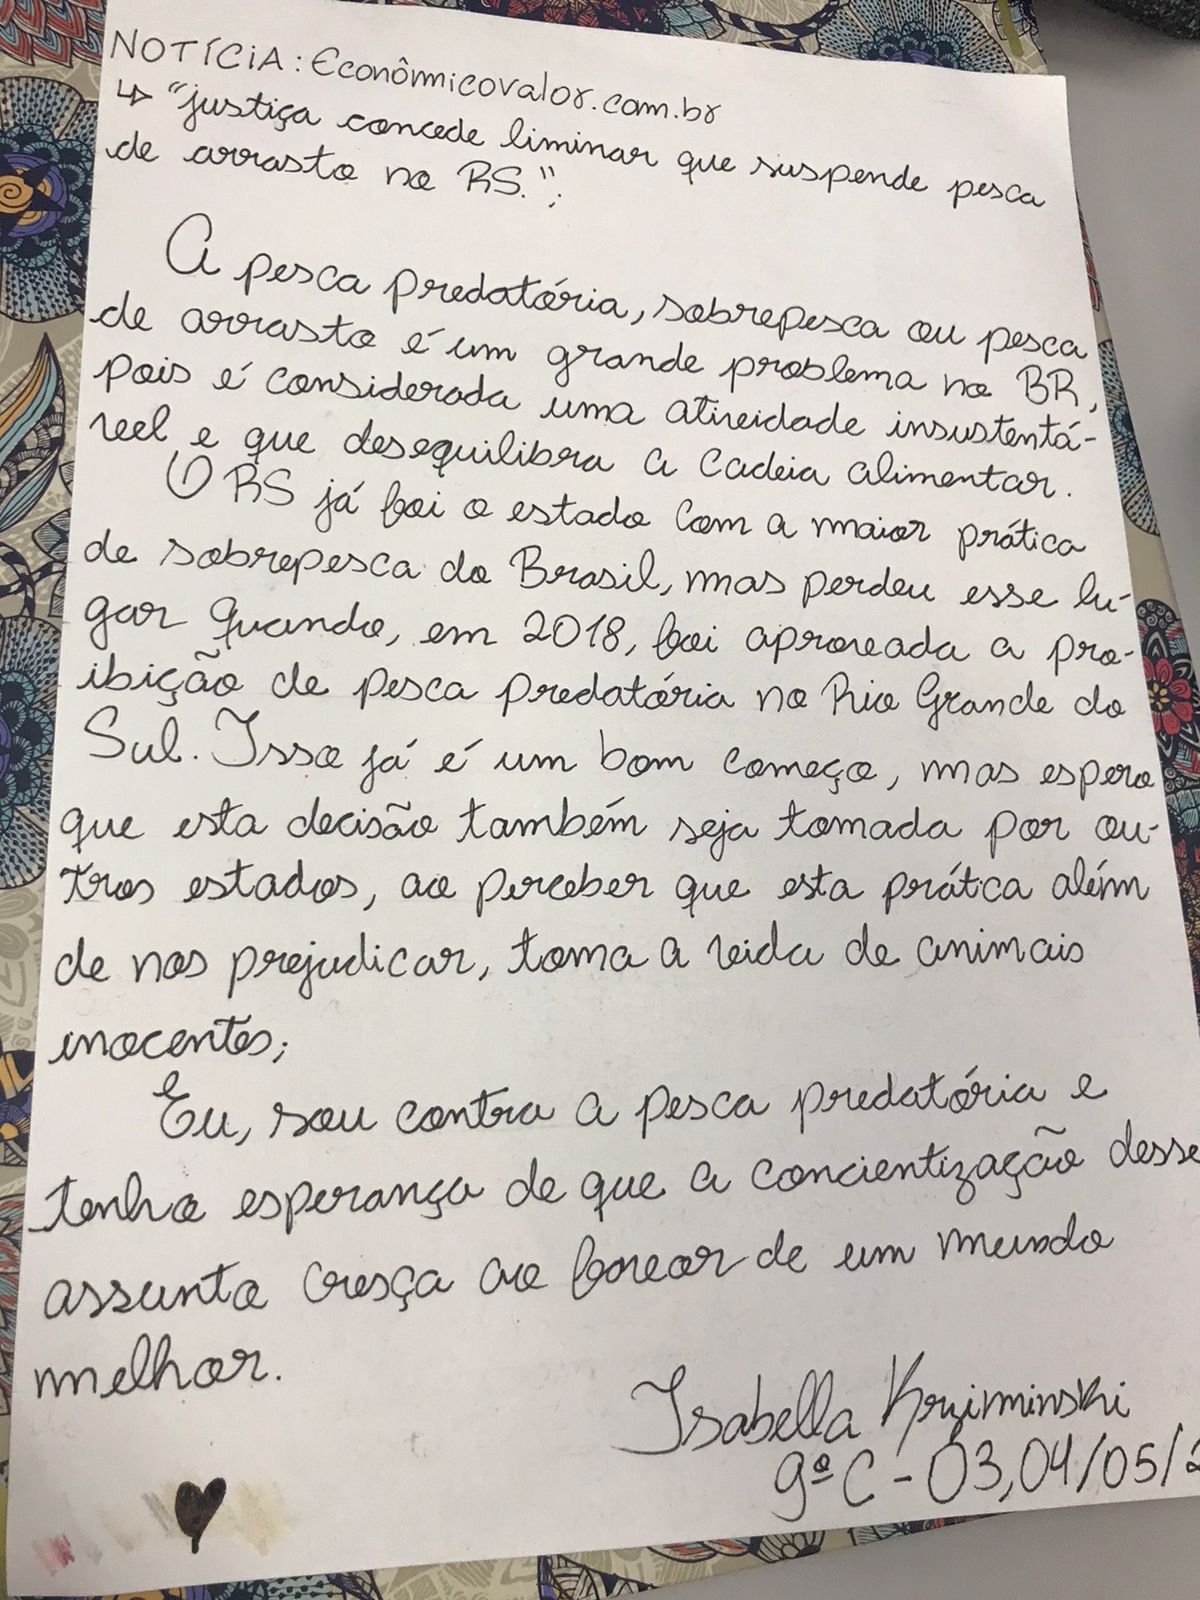 NOTÍCIA: Econômicovalor.com.br
↳ "justiça concede liminar que suspende pesca
de arrasto no RS.";
A pesca predatória, sobrepesca ou pesca
de arrasto é um grande problema no BR,
pois é considerada uma atividade insustentá-
vel e que desequilibra a cadeia alimentar.
O RS já foi o estado com a maior prática
de sobrepesca do Brasil, mas perdeu esse lu-
gar quando, em 2018, foi aprovada a pro-
ibição de pesca predatória no Rio Grande do
Sul. Isso já é um bom começo, mas espero
que esta decisão também seja tomada por ou-
tros estados, ao perceber que esta prática além
de nos prejudicar, toma a vida de animais
inocentes;
Eu, sou contra a pesca predatória e
tenho esperança de que a concientização desse
assunto cresça ao favor de um mundo
melhor.
Isabella Krziminski
9º C - 03,04/05/2